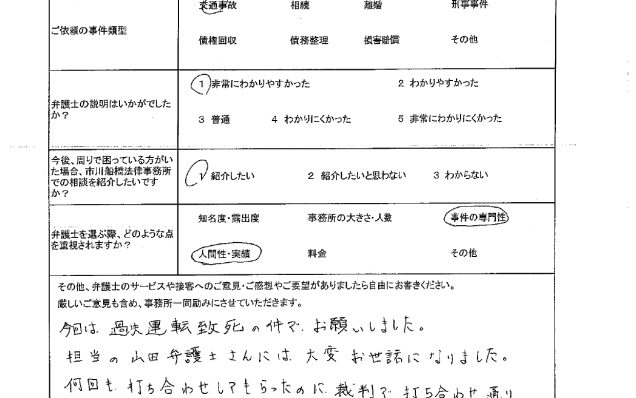 交通事故 相続 離婚 刑事事件
ご依頼の事件類型
債権回収 債務整理 損害賠償 その他
1 非常にわかりやすかった 2 わかりやすかった
弁護士の説明はいかがでした
か?
3 普通 4 わかりにくかった 5 非常にわかりにくかった
今後、周りで困っている方がい
た場合、市川船橋法律事務所
での相談を紹介したいです
か?
1 紹介したい 2 紹介したいと思わない 3 わからない
知名度・露出度 事務所の大きさ・人数 事件の専門性
弁護士を選ぶ際、どのような点
を重視されますか?
人間性・実績 料金 その他
その他、弁護士のサービスや接客へのご意見・ご感想やご要望がありましたら自由にお書きください。
厳しいご意見も含め、事務所一同励みにさせていただきます。
今回は 過失運転致死の件で お願いしました。
担当の 山田弁護士さんには 大変 お世話になりました。
何回も 打ち合わせしてもらったのに 裁判で 打ち合わせ 通り